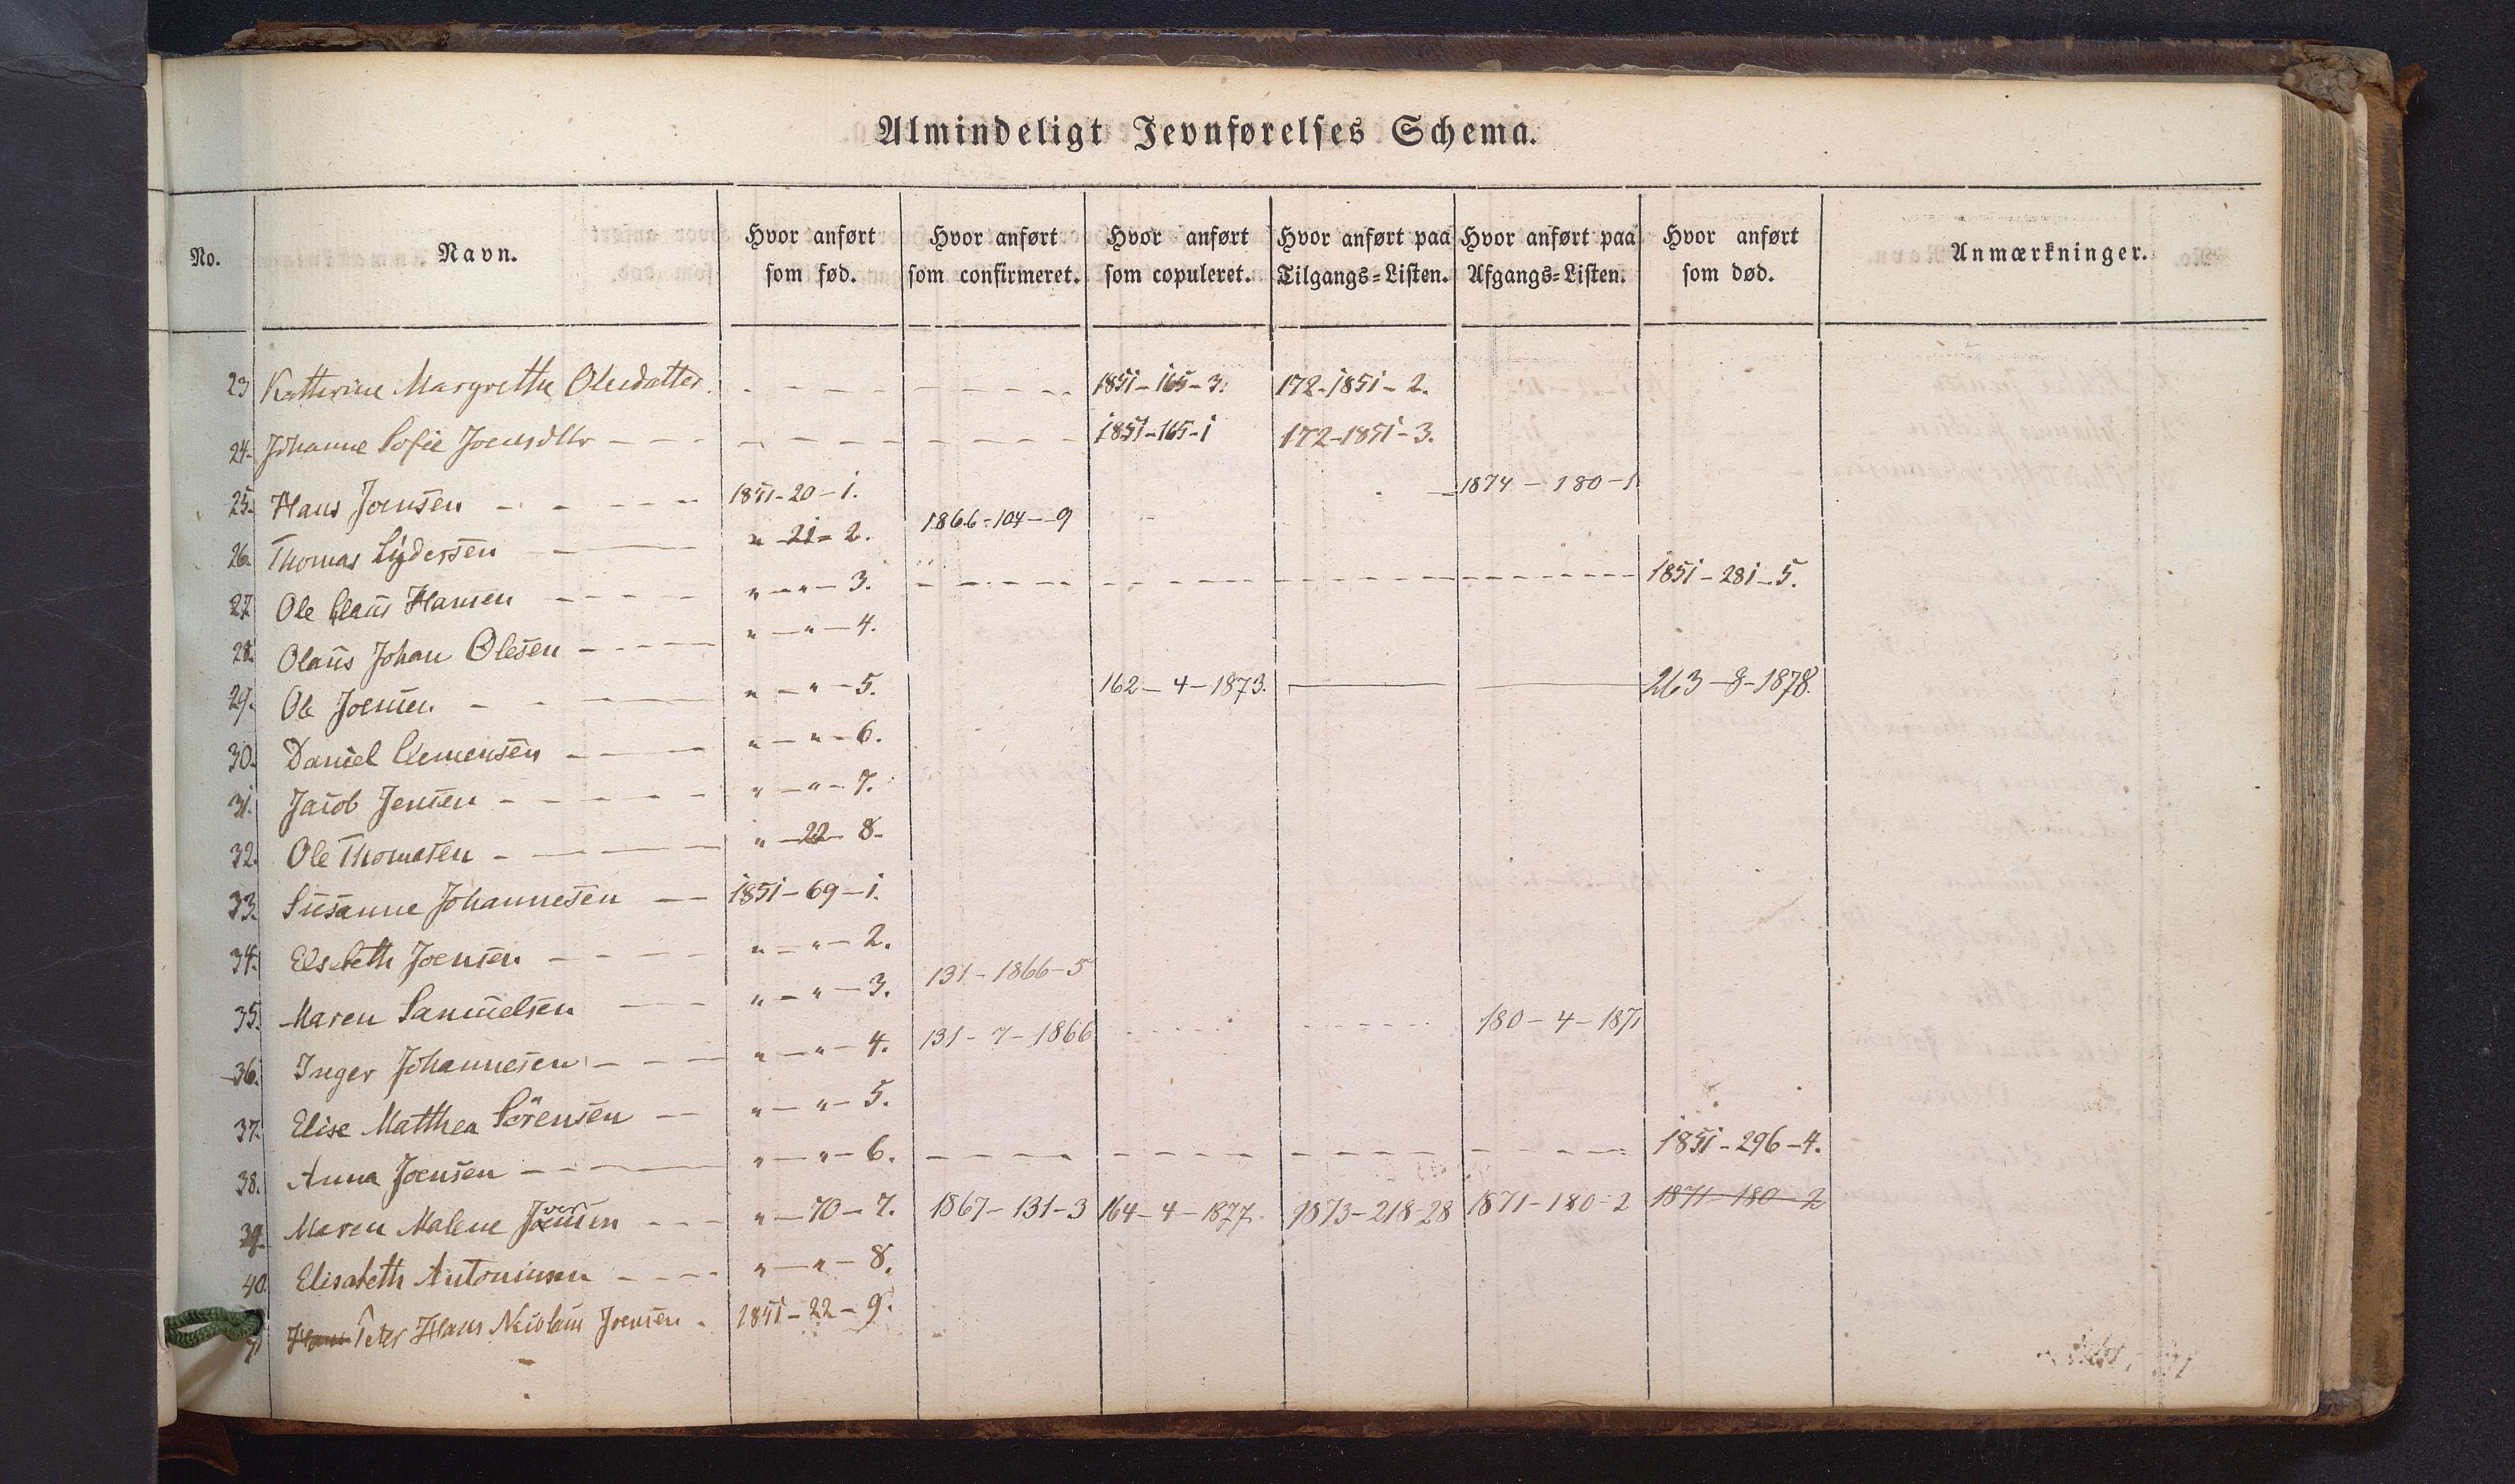 Almindeligt Jevnførelses Schema.
No. Navn. Hvor anført som fød. Hvor anført som confirmeret. Hvor anført som copuleret. Hvor anført paa Tilgangs=Listen. Hvor anført paa Afgangs=Listen. Hvor anført som død. Anmærkninger.
23 Katherine Margrethe Olesdatter. - - - - - - - - 1851-165-3. 172-1851-2.
24. Johanne Sofie Joensdttr - - - - - - - - - 1851-165-1 172-1851-3.
25. Hans Joensen - - - - - 1851-20-1. - 1874-180-1
26. Thomas Lydersen - — " 21-2. 1866-104-9
27 Ole Claus Hansen - - - - "-"-3. - - - - - - - - - - - - - - - - 1851-281-5.
28. Olaus Johan Olesen - - - - "-"-4.
29. Ole Joensen - - — "-"-5. 162-4-1873. — — 263-8-1878.
30. Daniel Clemensen - — - "-"-6.
31. Jacob Jensen - - - - - "-"-7.
32. Ole Thomasen - — — "-22-8.
33. Susanne Johannesen - - 1851-69-1.
34. Elsebeth Joensen - - - - "-"-2.
35. Maren Samuelsen — - "-"-3. 131-1866-5
36. Inger Johannesen - - — "-"-4. 131-7-1866 - - - - - - - - - 180-4-1871
37. Elise Matthea Sörensen - - "-"-5.
38. Anna Joensen - - — "-"-6. - - - - - - - - - - - - - - - - 1851-296-4.
39. Maren Malene Joensen - - - "-70-7. 1867-131-3 164-4-1877. 1873-218-28 1871-180-2 1871-180-2
40 Elisabeth Antoniusen - - - - "-"-8.
41 Hans Peter Hans Nicolaus Joensen. 1851-22-9.